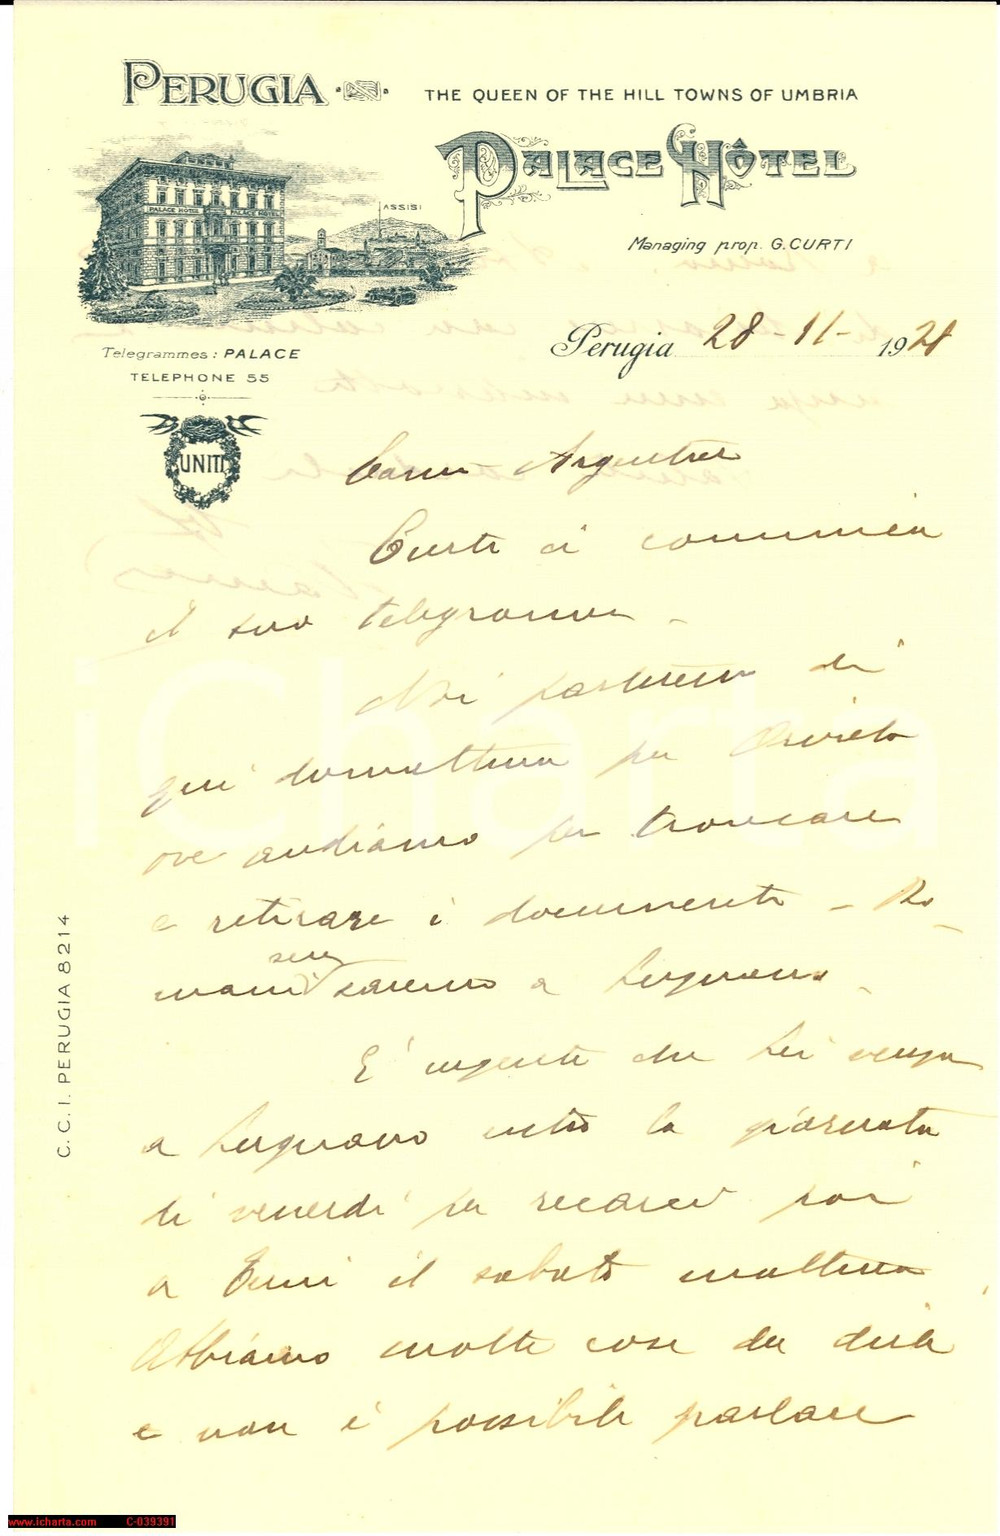 PERUGIA
THE QUEEN OF THE HILL TOWNS OF UMBRIA
PALACE HÔTEL
PALACE HOTEL PALACE HOTEL
ASSISI
Managing prop. G. CURTI
Perugia 28-11-1921
Telegrammes: PALACE
TELEPHONE 55
UNITI
Caro
Curti ci comunica
il suo telegramma -
Noi partiremo di
qui domattina per Orvieto
ove andiamo per troncare
e ritirare i documenti - Do-
sera
mani saremo a Lugnano -
E' urgente che Lei venga
a Lugnano entro la giornata
di venerdì per recarci poi
a Terni il sabato mattina
Abbiamo molte cose da dirle
e non è possibile parlare
C. C. I. PERUGIA 8214
iCharta
www.icharta.com C-039391